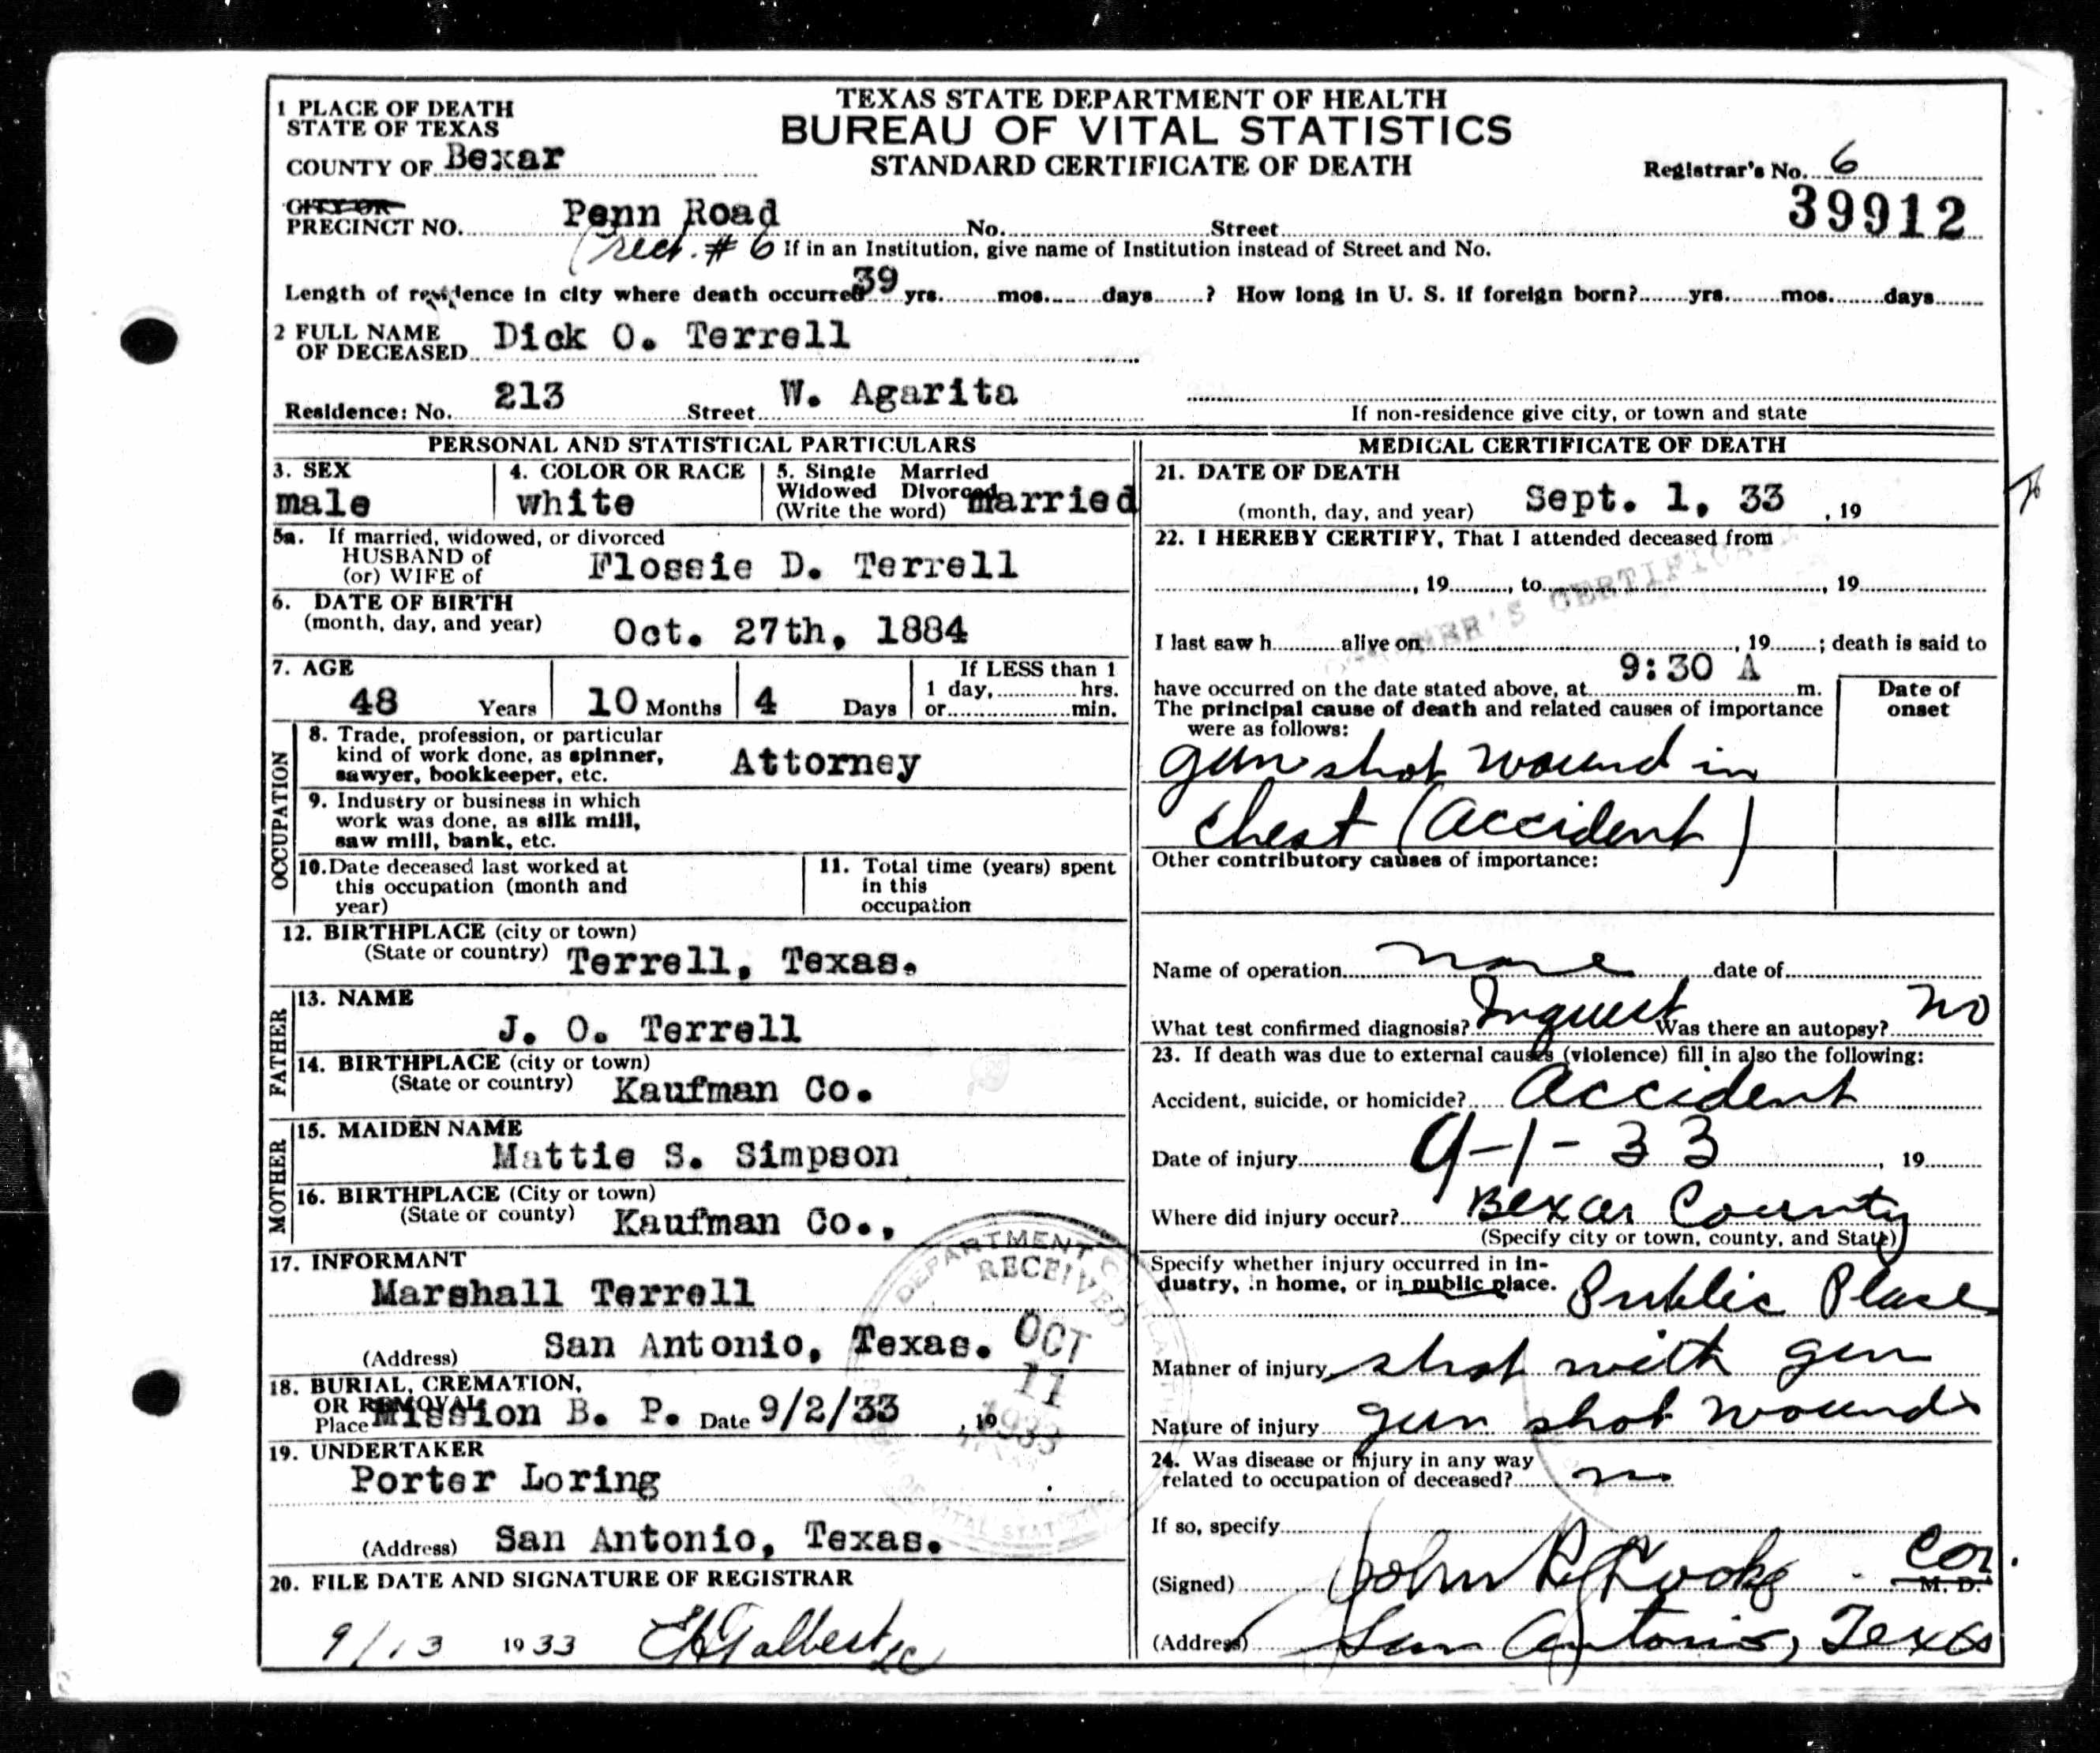 TEXAS STATE DEPARTMENT OF HEALTH
BUREAU OF VITAL STATISTICS
STANDARD CERTIFICATE OF DEATH
1 PLACE OF DEATH
STATE OF TEXAS
COUNTY OF Bexar
Registrar's No. 6
39912
CITY OR
PRECINCT NO. Penn Road No. Street
Prect. # 6 If in an Institution, give name of Institution instead of Street and No.
Length of residence in city where death occurred 39 yrs. mos. days ? How long in U. S. if foreign born? yrs. mos. days
2 FULL NAME
OF DECEASED Dick O. Terrell
Residence: No. 213 Street W. Agarita
If non-residence give city, or town and state
PERSONAL AND STATISTICAL PARTICULARS
3. SEX
male
4. COLOR OR RACE
white
5. Single Married
Widowed Divorced
(Write the word) married
5a. If married, widowed, or divorced
HUSBAND of
(or) WIFE of Flossie D. Terrell
6. DATE OF BIRTH
(month, day, and year) Oct. 27th, 1884
7. AGE
48 Years 10 Months 4 Days
If LESS than 1
1 day, hrs.
or min.
OCCUPATION
8. Trade, profession, or particular
kind of work done, as spinner,
sawyer, bookkeeper, etc. Attorney
9. Industry or business in which
work was done, as silk mill,
saw mill, bank, etc.
10. Date deceased last worked at
this occupation (month and
year)
11. Total time (years) spent
in this
occupation
12. BIRTHPLACE (city or town)
(State or country) Terrell, Texas.
FATHER
13. NAME
J. O. Terrell
14. BIRTHPLACE (city or town)
(State or country) Kaufman Co.
MOTHER
15. MAIDEN NAME
Mattie S. Simpson
16. BIRTHPLACE (City or town)
(State or county) Kaufman Co.,
17. INFORMANT
Marshall Terrell
(Address) San Antonio, Texas.
18. BURIAL, CREMATION,
OR REMOVAL
Place Mission B. P. Date 9/2/33 , 19
19. UNDERTAKER
Porter Loring
(Address) San Antonio, Texas.
20. FILE DATE AND SIGNATURE OF REGISTRAR
9/13 1933
DEPARTMENT
RECEIVED
OCT
11
1933
VITAL STATISTICS
MEDICAL CERTIFICATE OF DEATH
21. DATE OF DEATH
(month, day, and year) Sept. 1, 33 , 19
22. I HEREBY CERTIFY, That I attended deceased from
, 19 , to , 19
CORONER'S CERTIFICATE
I last saw h alive on , 19 ; death is said to
have occurred on the date stated above, at 9:30 A m.
The principal cause of death and related causes of importance
were as follows:
Date of
onset
gun shot wound in
chest (accident)
Other contributory causes of importance:
Name of operation none date of
What test confirmed diagnosis? Inquest Was there an autopsy? no
23. If death was due to external causes (violence) fill in also the following:
Accident, suicide, or homicide? accident
Date of injury 9-1-33 , 19
Where did injury occur? Bexar County
(Specify city or town, county, and State)
Specify whether injury occurred in in-
dustry, in home, or in public place. Public Place
Manner of injury shot with gun
Nature of injury gun shot wounds
24. Was disease or injury in any way
related to occupation of deceased? no
If so, specify
(Signed) John Cor. M. D.
(Address) San Antonio, Texas